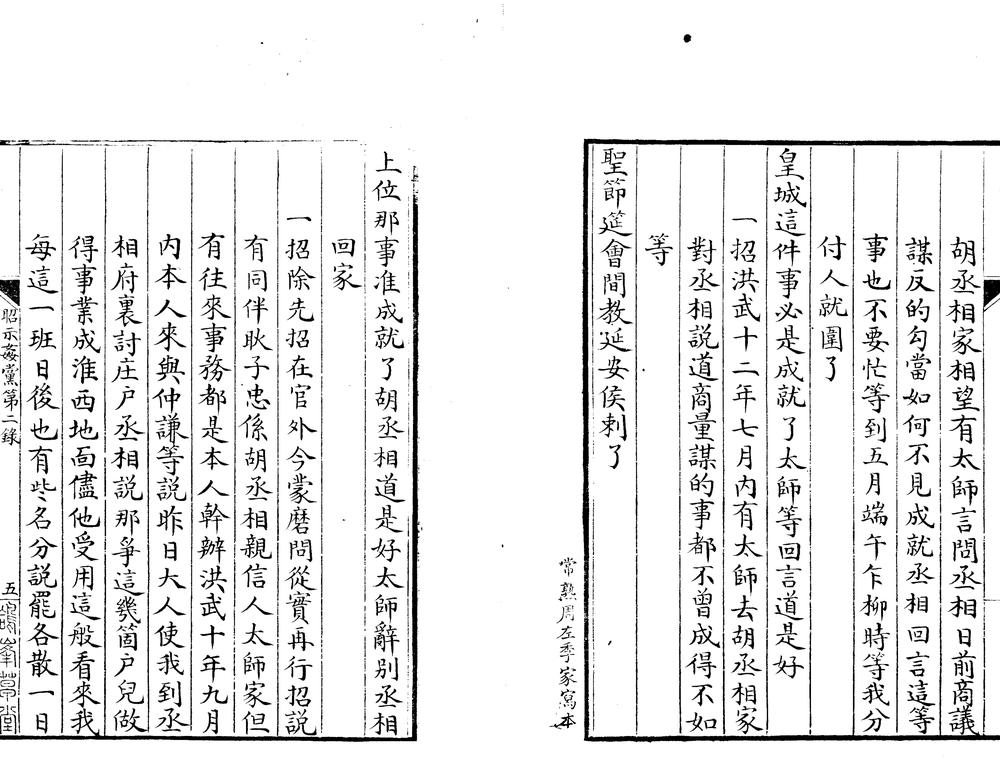 胡丞相家相望有太師言問丞相日前商議
謀反的勾當如何不見成就丞相回言這等
事也不要忙等到五月端午乍柳時等我分
付人就圍了
皇城這件事必是成就了太師等回言道是好
一招洪武十二年七月內有太師去胡丞相家
對丞相說道商量謀的事都不曾成得不如
等
聖節筵會間教延安侯刺了
常熟周左季家寫本
上位那事准成就了胡丞相道是好太師辭别丞相
回家
一招除先招在官外今蒙磨問從實再行招説
有同伴耿子忠係胡丞相親信人太師家但
有往來事務都是本人幹辦洪武十年九月
内本人來與仲謙等説昨日大人使我到丞
相府裏討庄户丞相説那爭這幾箇户兒做
得事業成淮西地面儘他受用這般看來我
每這一班日後也有些名分説罷各散一日
昭示姦黨第二錄
五